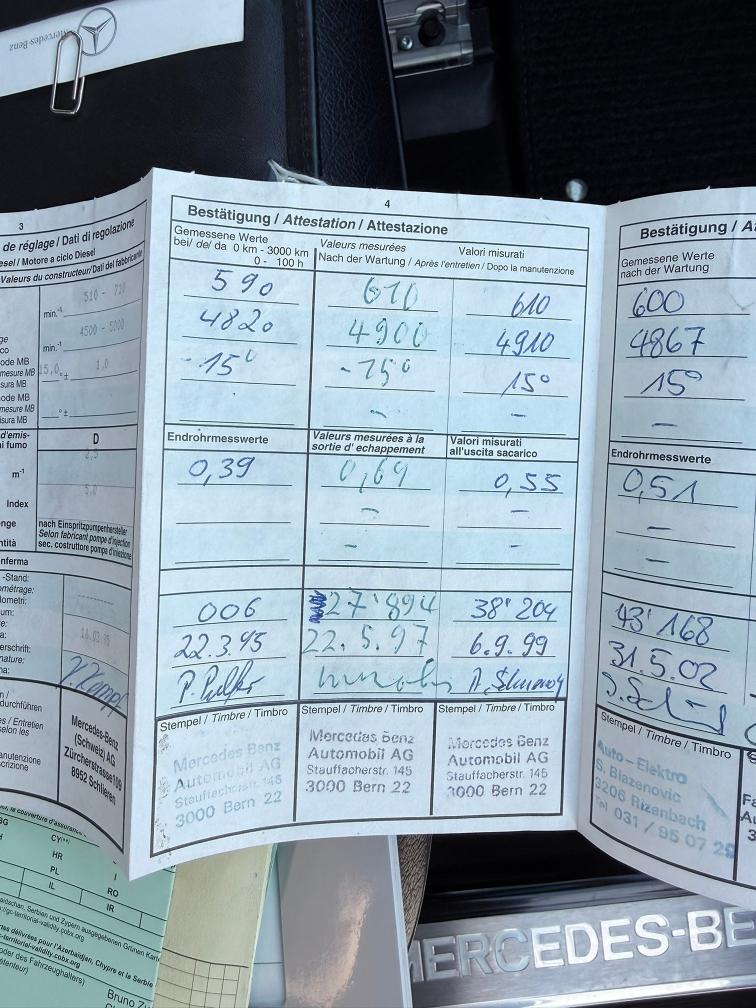 Mercedes-Benz
3
de réglage / Dati di regolazione
esel / Motore a ciclo Diesel
Valeurs du constructeur/Dati del fabbricante
min.-¹
510 - 710
min.-¹
4500 - 5000
ode MB
mesure MB
sura MB
15,0 °±
1,0
ode MB
mesure MB
sura MB
°±
d'emis-
ni fumo
D
m-¹
5,0
Index
nach Einspritzpumpenhersteller
Selon fabricant pompe d'injection
sec. costruttore pompa d'iniezione
nferma
-Stand:
ométrage:
lometri:
um:
e:
a:
erschrift:
nature:
ma:
durchführen
es / Entretien
selon les
anutenzione
crizione
Mercedes-Benz
(Schweiz) AG
Zürcherstrasse 109
8952 Schlieren
4
Bestätigung / Attestation / Attestazione
Gemessene Werte Valeurs mesurées Valori misurati
bei/ de/ da 0 km - 3000 km Nach der Wartung / Après l'entretien / Dopo la manutenzione
0 - 100 h
590 610 610
4820 4900 4910
-15° -15° 15°
- -
Endrohrmesswerte Valeurs mesurées à la Valori misurati
sortie d'echappement all'uscita sacarico
0,39 0,69 0,55
- -
- -
006 27'894 38'204
22.3.95 22.5.97 6.9.99
Stempel / Timbre / Timbro Stempel / Timbre / Timbro Stempel / Timbre / Timbro
Mercedes Benz Mercedes Benz Mercedes Benz
Automobil AG Automobil AG Automobil AG
Stauffacherstr. 145 Stauffacherstr. 145 Stauffacherstr. 145
3000 Bern 22 3000 Bern 22 3000 Bern 22
Bestätigung / At
Gemessene Werte
nach der Wartung
600
4867
15°
-
Endrohrmesswerte
0,51
-
-
43'168
31.5.02
Stempel / Timbre / Timbro
Auto - Elektro
S. Blazenovic
3206 Rizenbach
Tel 031 / 95 07 29
BG
CY(**)
HR
PL
I
IL
RO
IR
baidschan, Serbien und Zypern ausgegebenen Grünen Kart
artes délivrées pour l'Azerbaïdjan, Chypre et la Serbie
oder des Fahrzeughalters)
Bruno Zu
MERCEDES-BE